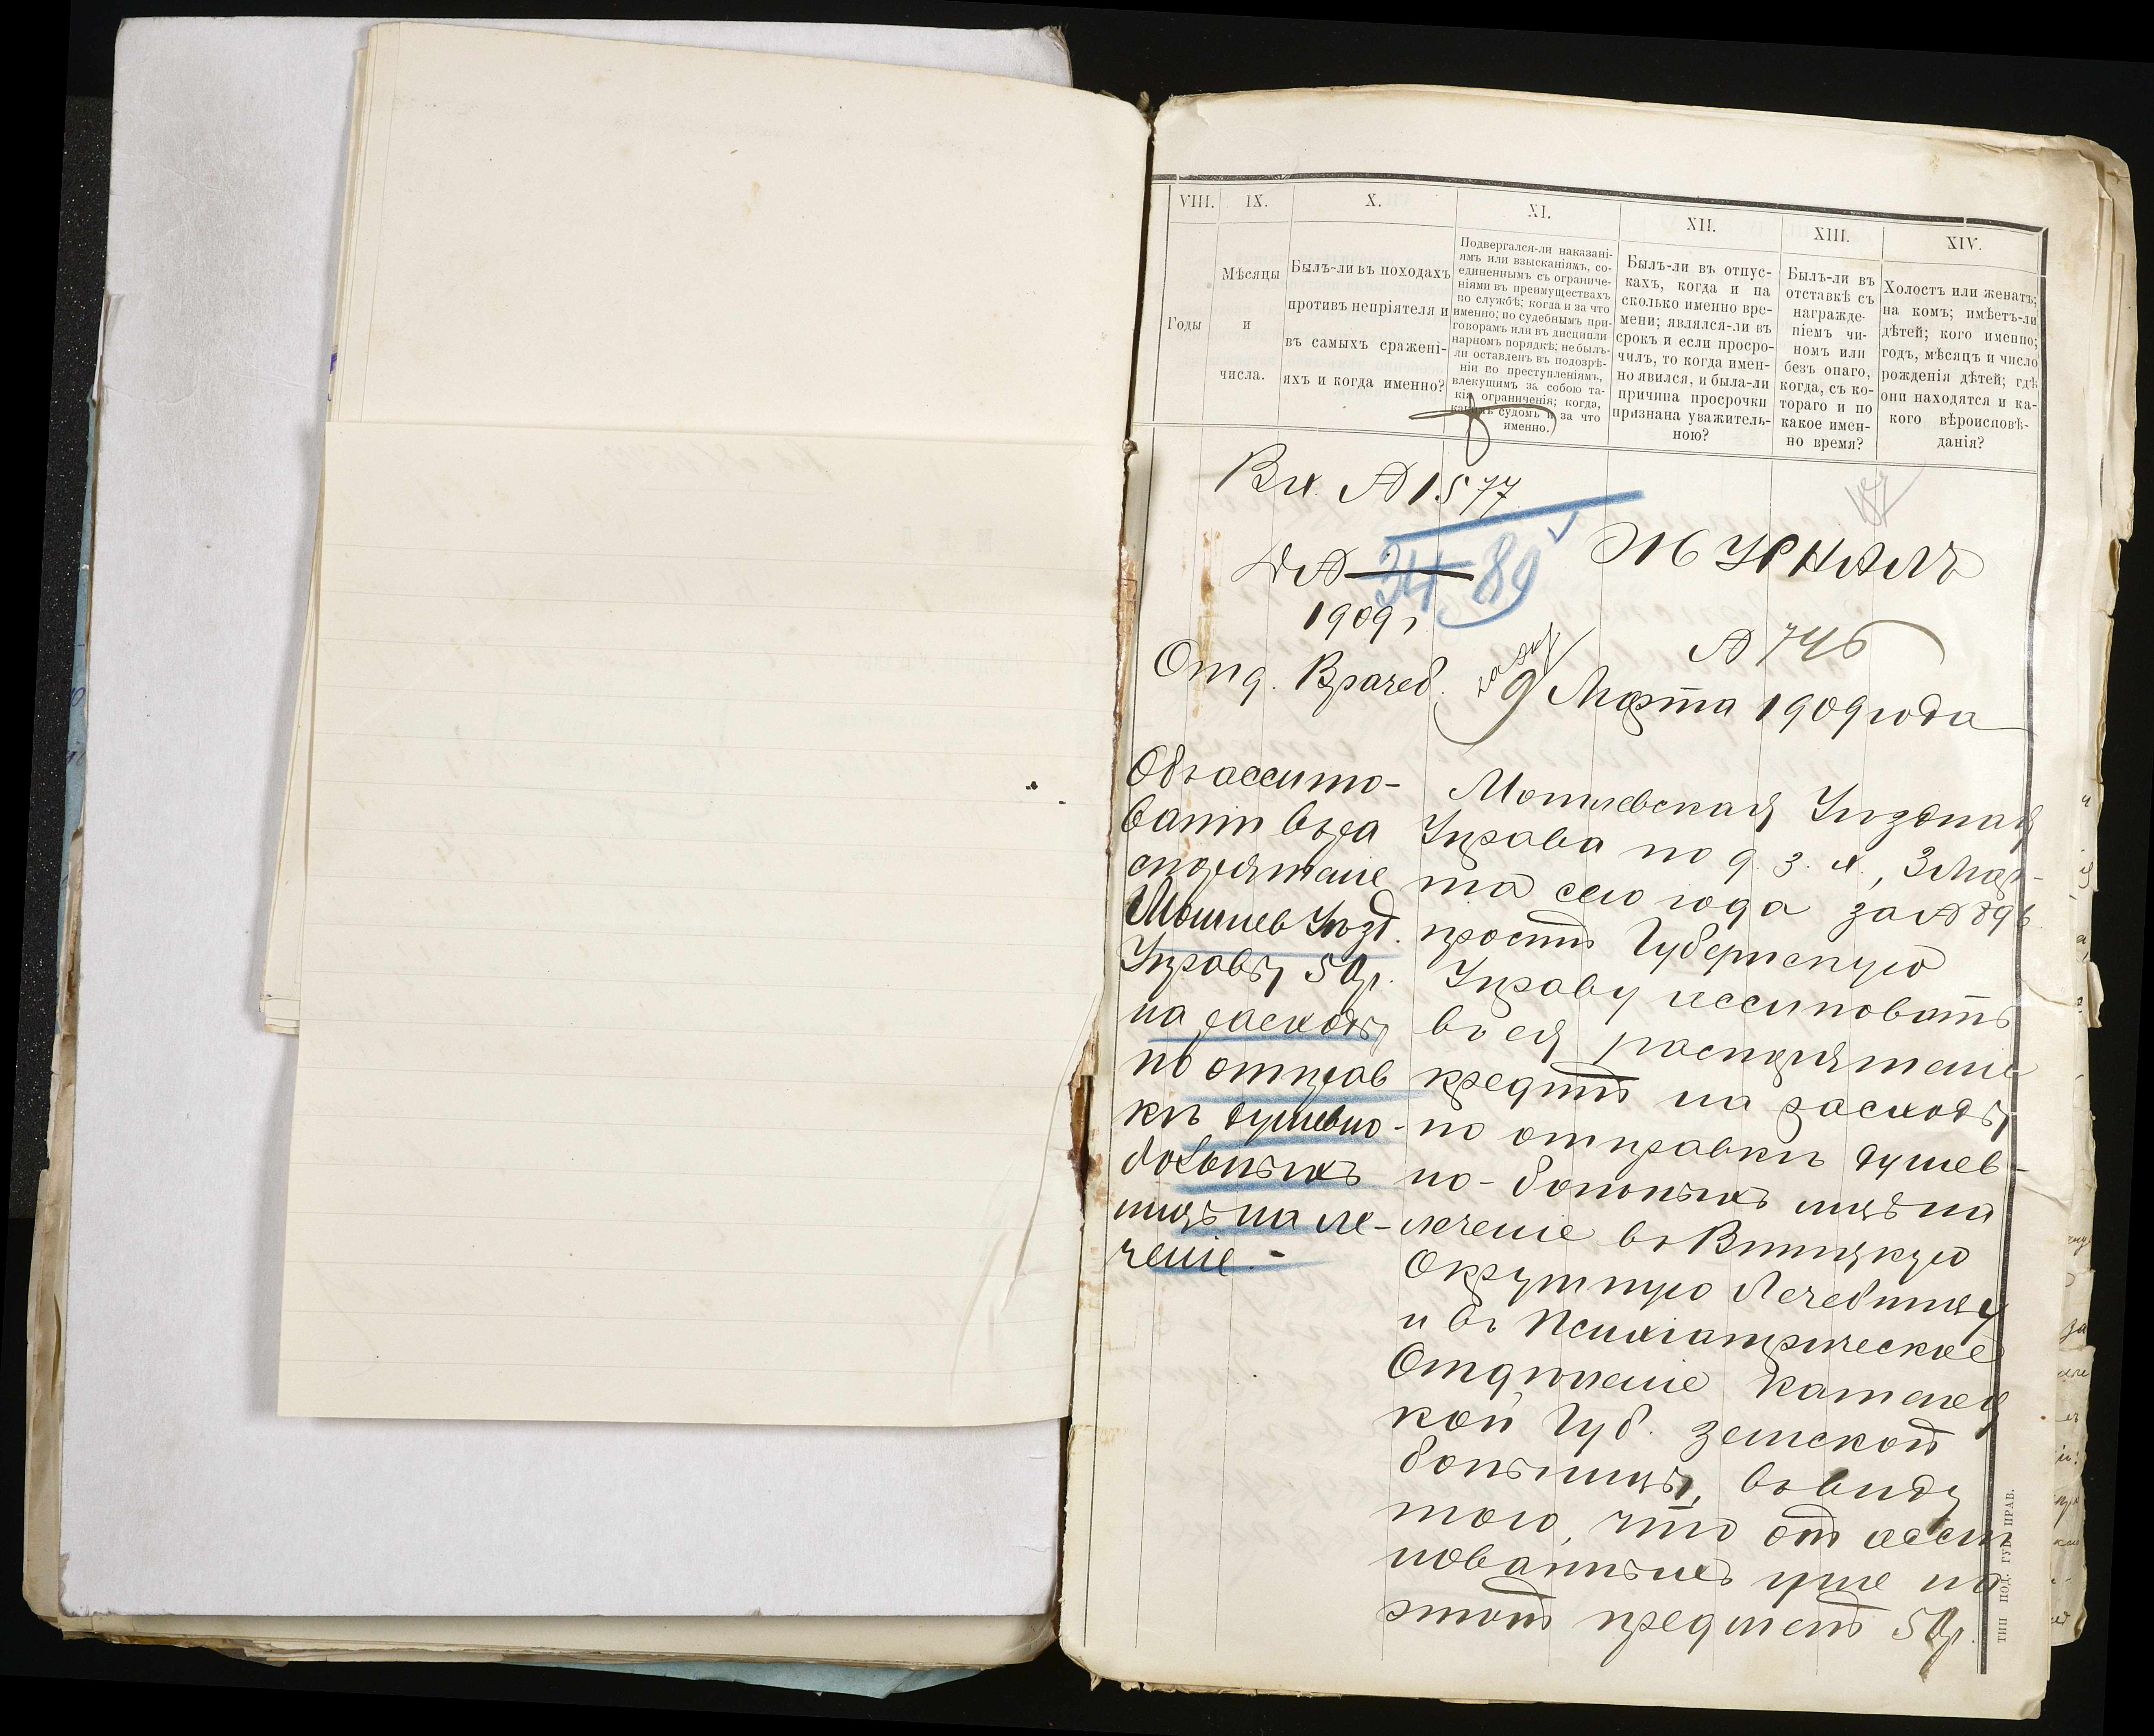 VIII.
IX.
X.
XI.
XII.
XIII.
XIV.
Годы
Мѣсяцы
и
числа.
Былъ-ли въ походахъ
противъ непріятеля и
въ самыхъ сражені-
яхъ и когда именно?
Подвергался-ли наказані-
ямъ или взысканіямъ, со-
единеннымъ съ ограниче-
ніями въ преимуществахъ
по службѣ; когда и за что
именно; по судебнымъ при-
говорамъ или въ дисципли
нарномъ порядкѣ; не былъ-
ли оставленъ въ подозрѣ-
ніи по преступленіямъ,
влекущимъ за собою та-
кія ограниченія; когда,
какимъ судомъ и за что
именно.)
Былъ-ли въ отпус-
кахъ, когда и на
сколько именно вре-
мени; являлся-ли въ
срокъ и если просро-
чилъ, то когда имен-
но явился, и была-ли
причина просрочки
признана уважитель-
ною?
Былъ-ли въ
отставкѣ съ
награжде-
ніемъ чи-
номъ или
безъ онаго,
когда, съ ко-
тораго и по
какое имен-
но время?
Холостъ или женатъ;
на комъ; имѣетъ-ли
дѣтей; кого именно;
годъ, мѣсяцъ и число
рожденія дѣтей; гдѣ
они находятся и ка-
кого вѣроисповѣ-
данія?
Вх. № 1577
Д № 34-89
1909 г.
Отд. Врачеб.
Журналъ
№ 746
9 Марта 1909 года
Объ ассигно-
ваніи въ ра
споряженіе
Могилев Уѣзд.
Управы 50 р.
на расходы
по отправ
кѣ душевно-
больныхъ
лицъ на ле-
ченіе. -
Могилевская Уѣздная
Управа по д. з. х., 3 Мар-
та сего года за № 896
проситъ Губернскую
Управу ассигновать
въ ея распоряженіе
кредитъ на расходы
по отправкѣ душев-
но-больныхъ лицъ на
леченіе въ Винницкую
Окружную Лечебницу
и въ Психіатрическое
Отдѣленіе Каменец
кой Губ. Земской
больницы, въ виду
того, что отъ асси
гнованныхъ уже на
этотъ предметъ 50 р.
ТИП ПОД. ГУБ. ПРАВ.